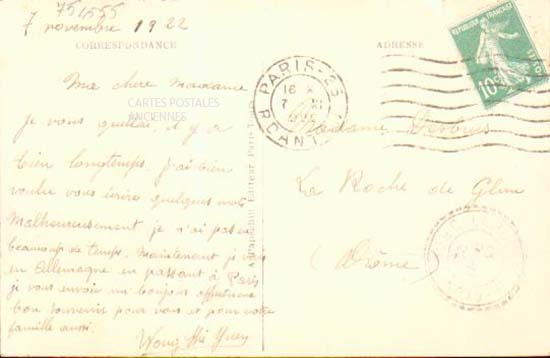 751555
7 novembre 1922
CORRESPONDANCE
ADRESSE
REPUBLIQUE FRANÇAISE
10c
PARIS-25
16
7 XI
R DANTON
CARTES POSTALES
ANCIENNES
Ma chere Madame
Je vous quittai, il y a
bien longtemps. J'ai bien
voulu vous écrire quelques mots
Malheureusement je n'ai pas eu
beaucoup de temps. Maintenant je vais
en Allemagne en passant à Paris
je vous envoie un bonjour affectueux
bon souvenir pour vous et pour votre
famille aussi.
Editeur, Paris
Madame
La Roche de Glun
(Drôme)